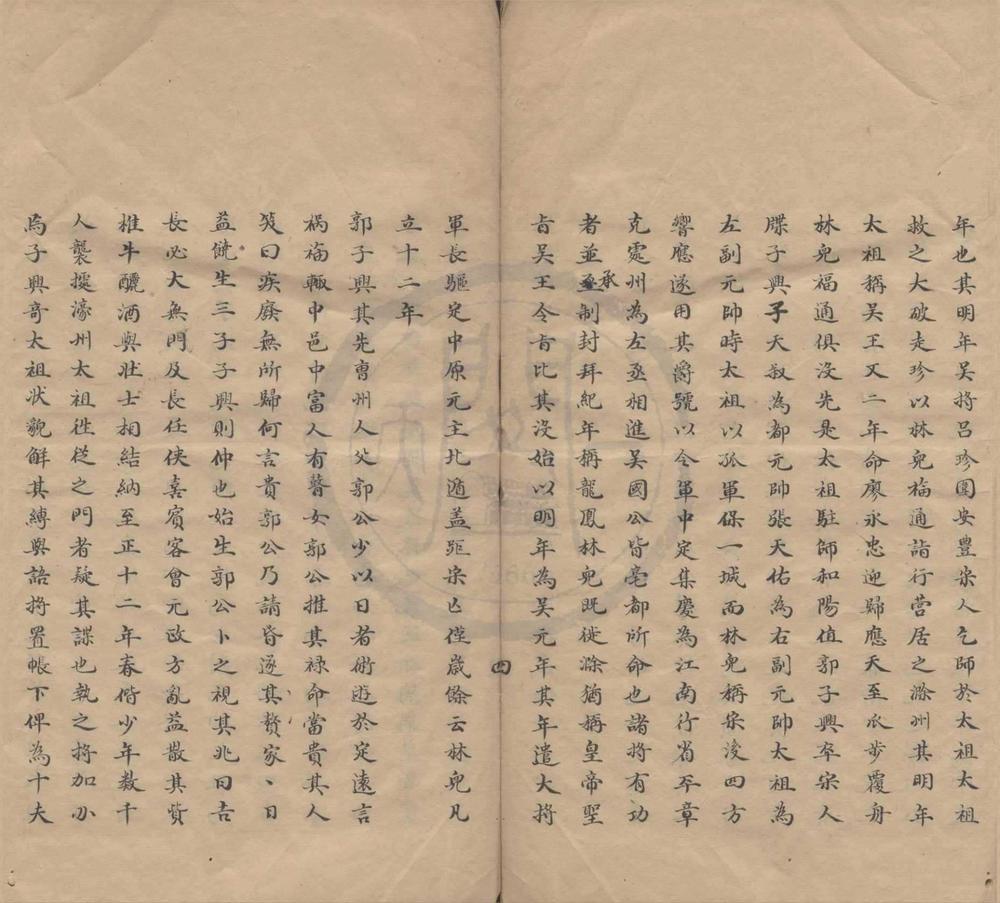 年也其明年吴将吕珍圍安豊宋人乞師於太祖太祖
救之大破走珍以林兒福通詣行营居之滁州其明年
太祖稱吴王又二年命廖永忠迎歸應天至瓜步覆舟
林兒福通俱沒先是太祖駐師和陽值郭子興卒宋人
牒子興子天叙為都元帥張天佑為右副元帥太祖為
左副元帥時太祖以孤軍保一城而林兒稱宋後四方
響應遂用其爵號以令軍中定集慶為江南行省平章
克處州為左丞相進吴國公皆亳都所命也諸将有功
者並承制封拜紀年稱龍鳳林兒既徙滁猶稱皇帝聖
旨吴王令旨比其沒始以明年為吴元年其年遣大将
四
軍長驅定中原元主北遁盖距宋亡僅歲餘云林兒凡
立十二年
郭子興其先曹州人父郭公少以日者術遊於定遠言
禍福輒中邑中富人有瞽女郭公推其禄命當貴其人
笑曰疾廢無所歸何言貴郭公乃請昏遂其贅家、日
益饒生三子子興則仲也始生郭公卜之視其兆曰吉
長必大無門及長任侠喜賓客會元政方亂益散其貲
椎牛釃酒與壯士相結納至正十二年春偕少年数千
人襲據濠州太祖徃從之門者疑其諜也執之将加刃
為子興奇太祖状貌解其縛與語将置帳下俾為十夫